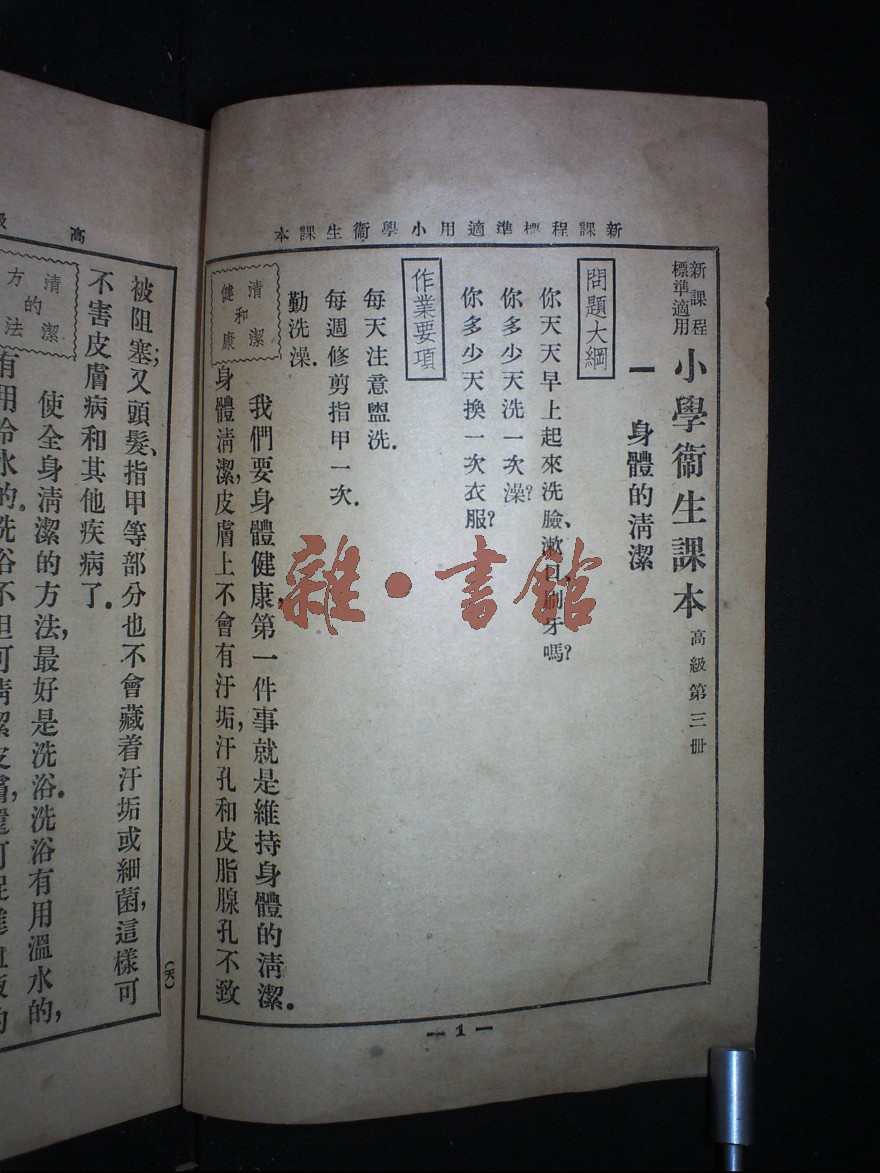 新課程標準適用小學衞生課本
新課程
標準適用
小學衞生課本
高級第三冊
一 身體的淸潔
問題大綱
你天天早上起來洗臉、漱口、刷牙嗎?
你多少天洗一次澡?
你多少天換一次衣服?
作業要項
每天注意盥洗.
每週修剪指甲一次.
勤洗澡.
清潔
和
健康
我們要身體健康,第一件事就是維持身體的淸潔.
身體淸潔,皮膚上不會有汙垢,汗孔和皮脂腺孔不致
— 1 —
雜·書館
高級
(天)
被阻塞;又頭髮、指甲等部分也不會藏着汙垢或細菌,這樣可
不害皮膚病和其他疾病了.
清潔
的
方法
使全身淸潔的方法,最好是洗浴.洗浴有用溫水的,
有用冷水的.洗浴不但可淸潔皮膚,還可促進血液的